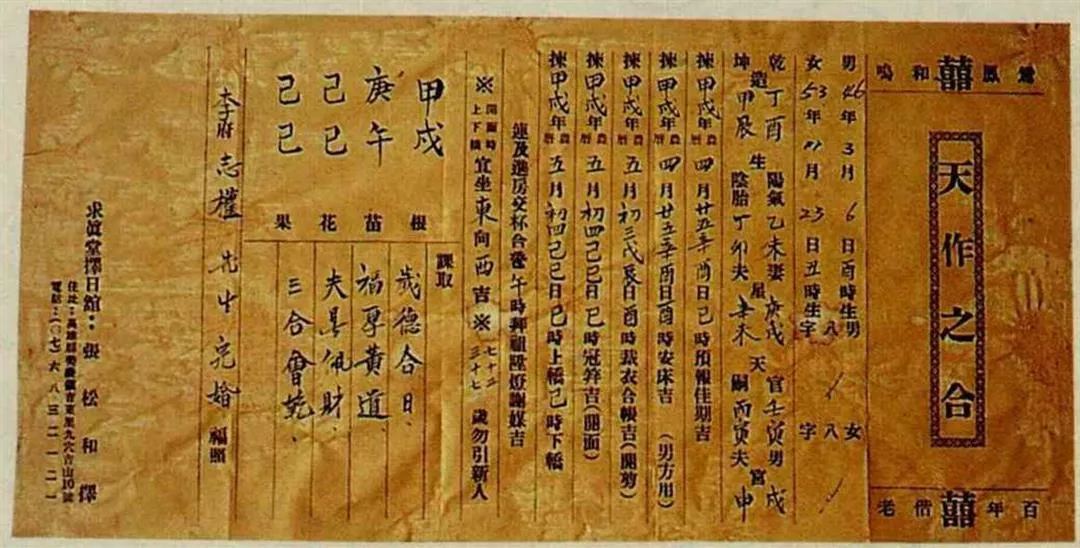 鸞鳳囍和鳴
天作之合
百年囍偕老
男46年3月6日酉時生男八字
女53年11月23日丑時生女八字
乾造丁酉生陽氣乙未妻星庚戌天官壬寅男宮戌
坤造甲辰生陰胎丁卯夫星辛未天嗣丙寅夫宮申
揀甲戌年農曆四月廿五辛酉日巳時預報佳期吉
揀甲戌年農曆四月廿五辛酉日酉時安床吉(男方用)
揀甲戌年農曆五月初三戊辰日酉時裁衣合帳吉(開剪)
揀甲戌年農曆五月初四己巳日巳時冠笄吉(開面)
揀甲戌年農曆五月初四己巳日巳時上轎巳時下轎
進房交杯合巹午時拜祖陞燈謝媒吉
※開面時上下轎宜坐東向西吉※七十二三十七歲勿引新人
甲戌 根
庚午 苗
己巳 花
己巳 果
課取
歲德合日、
福厚黃道、
夫星佩財、
三合會乾、
李府志權先生完婚福照
求眞堂擇日館:張松和擇
電話:(〇七)六八三二一二一